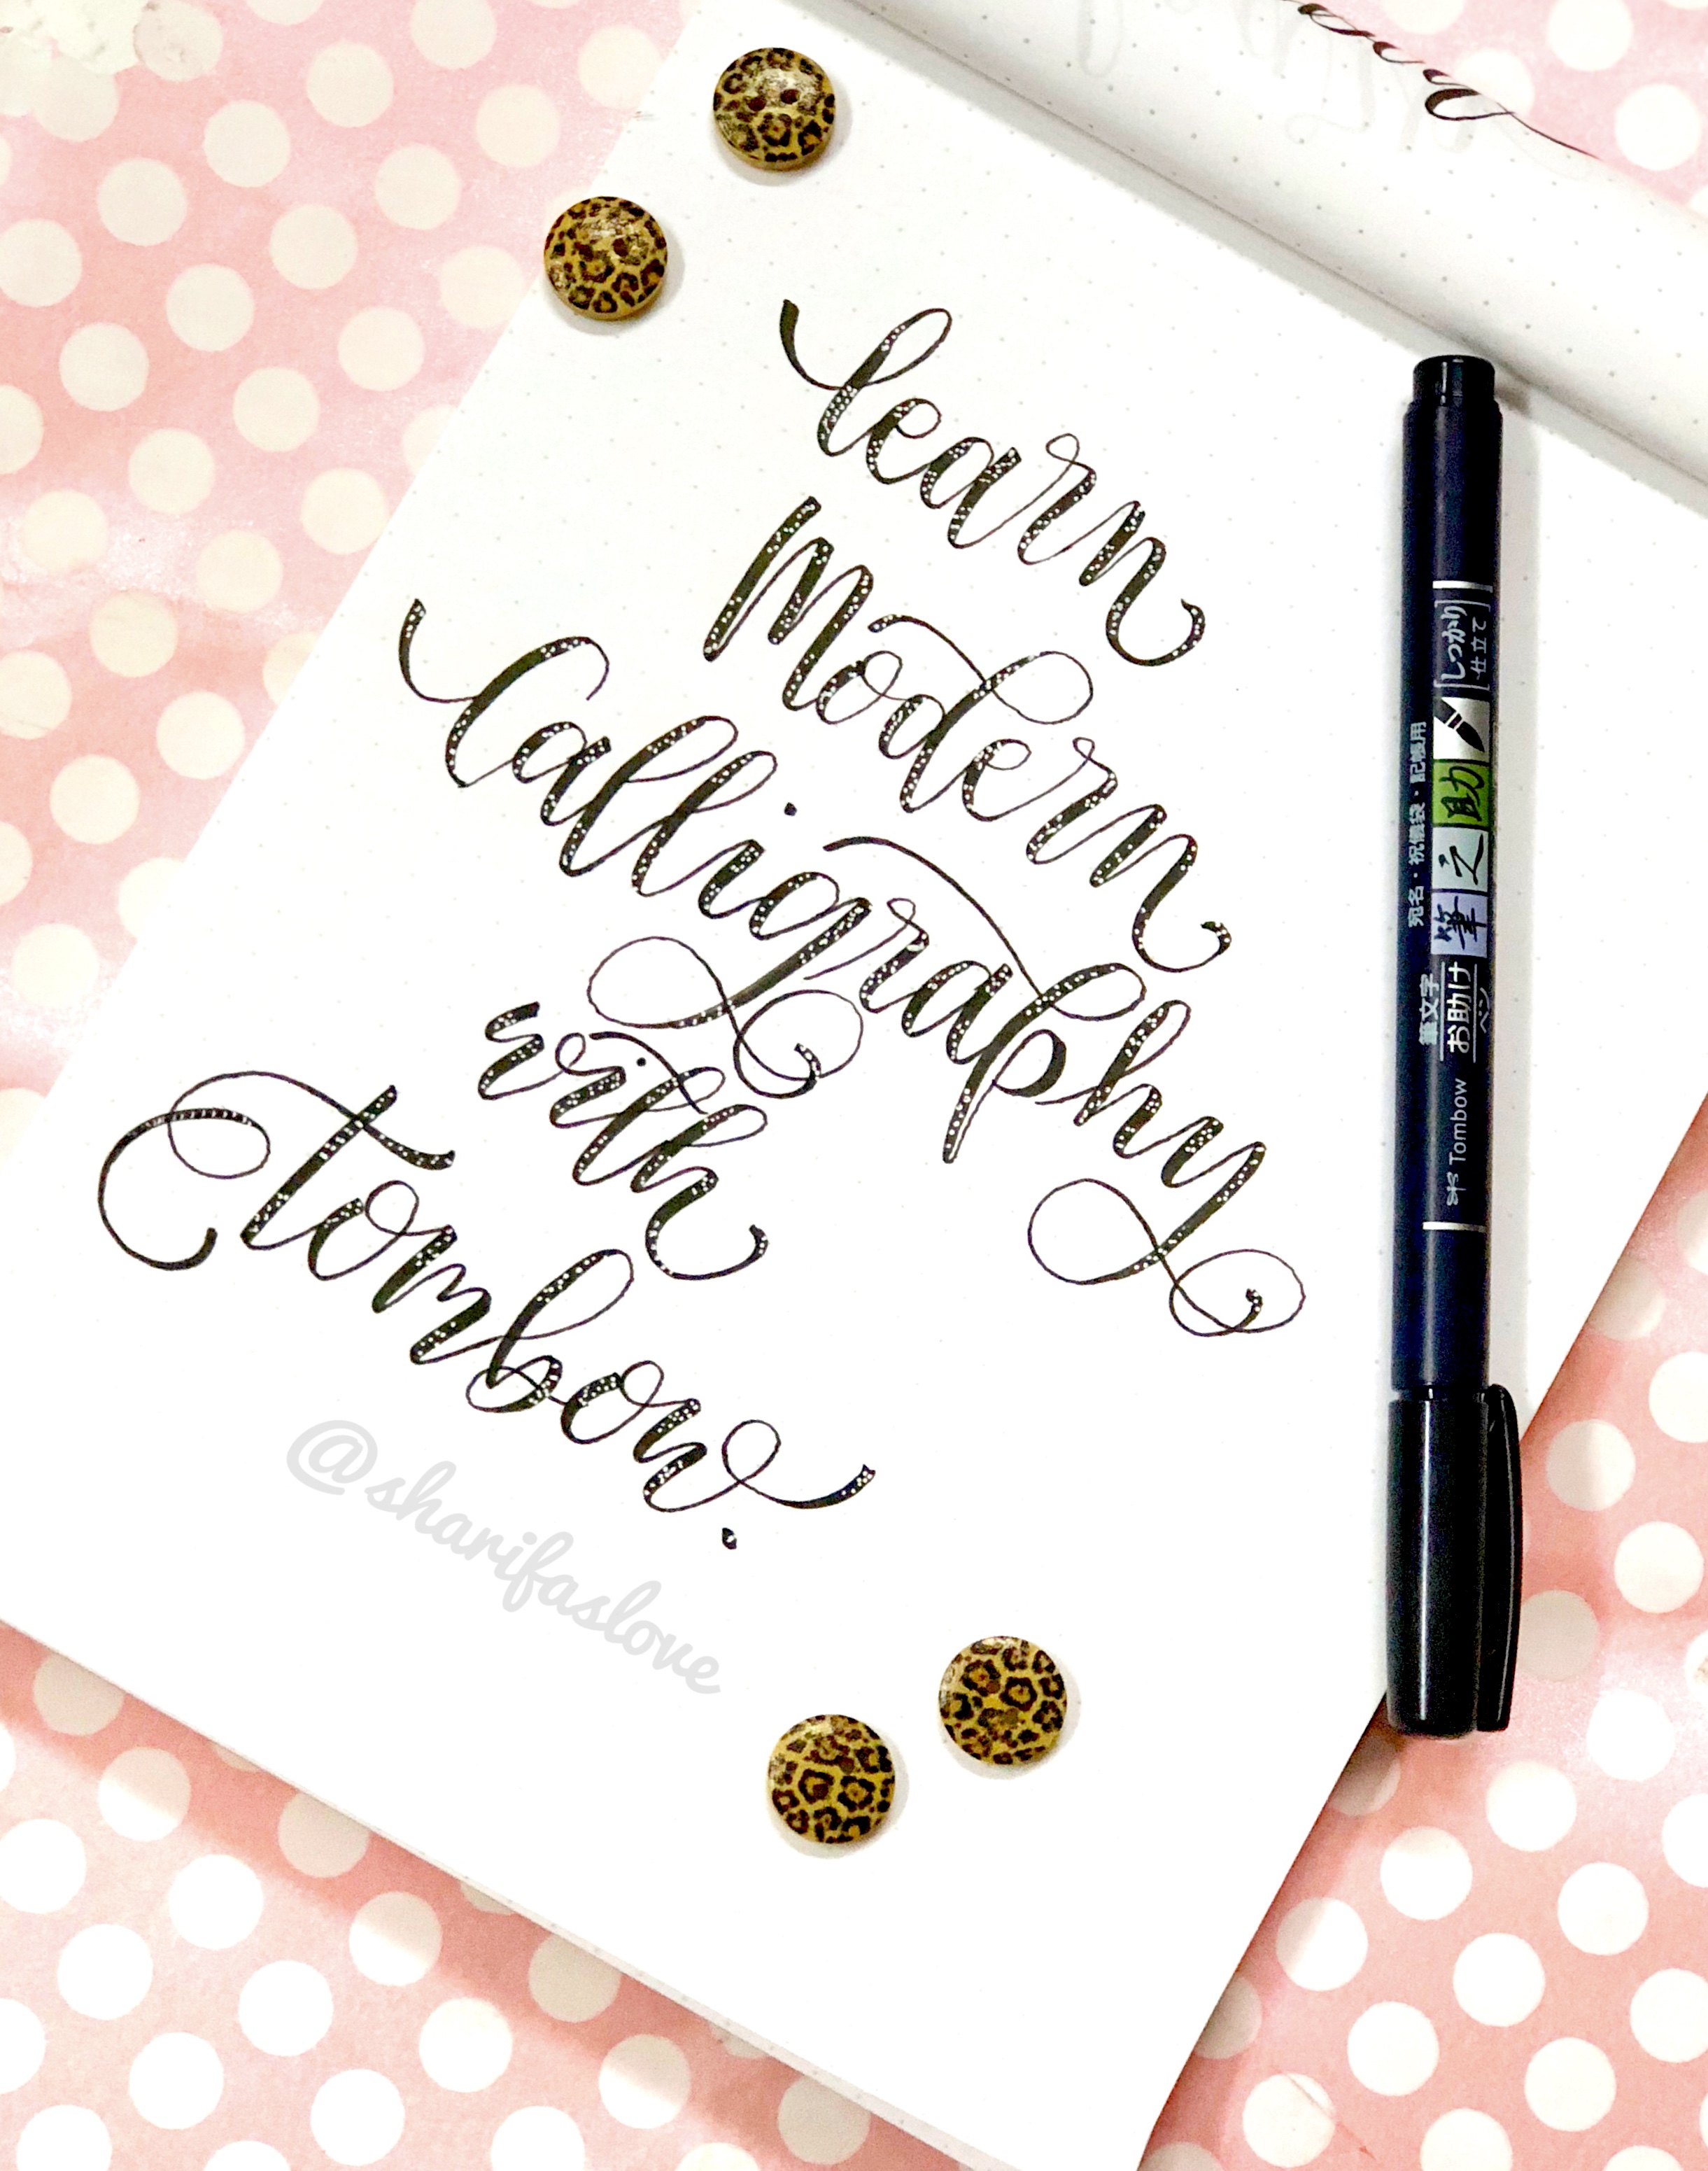 learn
Modern
Calligraphy
with
Tombow.
@sharifaslove
Tombow
筆文字
お助け
ペン
筆之助
しっかり
仕立て
宛名・祝儀袋・記帳用